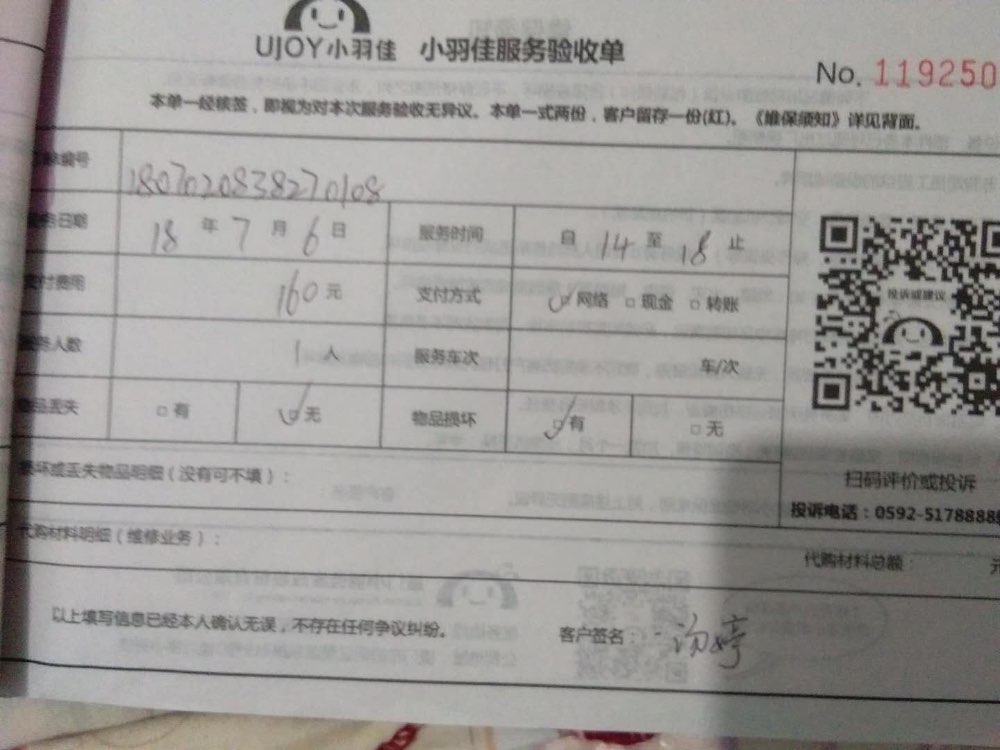 UJOY小羽佳 小羽佳服务验收单
No. 119250
本单一经核签，即视为对本次服务验收无异议。本单一式两份，客户留存一份(红)。《维保须知》详见背面。
单编号 1807020838270108
务日期 18 年 7 月 6 日 服务时间 自 14 至 18 止
付费用 160 元 支付方式 网络 □ 现金 □ 转账
务人数 1 人 服务车次 车/次
品丢失 □ 有 □ 无 物品损坏 □ 有 □ 无
投诉或建议
坏或丢失物品明细（没有可不填）：
扫码评价或投诉
投诉电话：0592-5178888
代购材料明细（维修业务）：
代购材料总额： 元
以上填写信息已经本人确认无误，不存在任何争议纠纷。 客户签名：